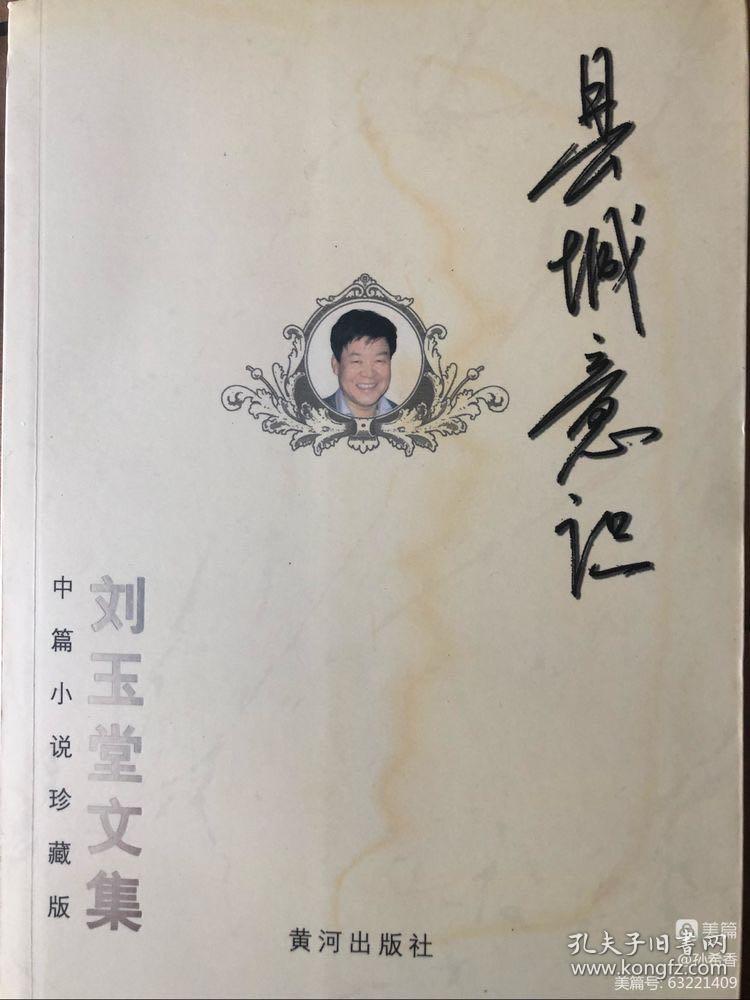 县城意识
刘玉堂文集
中篇小说珍藏版
黄河出版社
美篇
孔夫子旧书网
@孙希香
www.kongfz.com
美篇号: 63221409